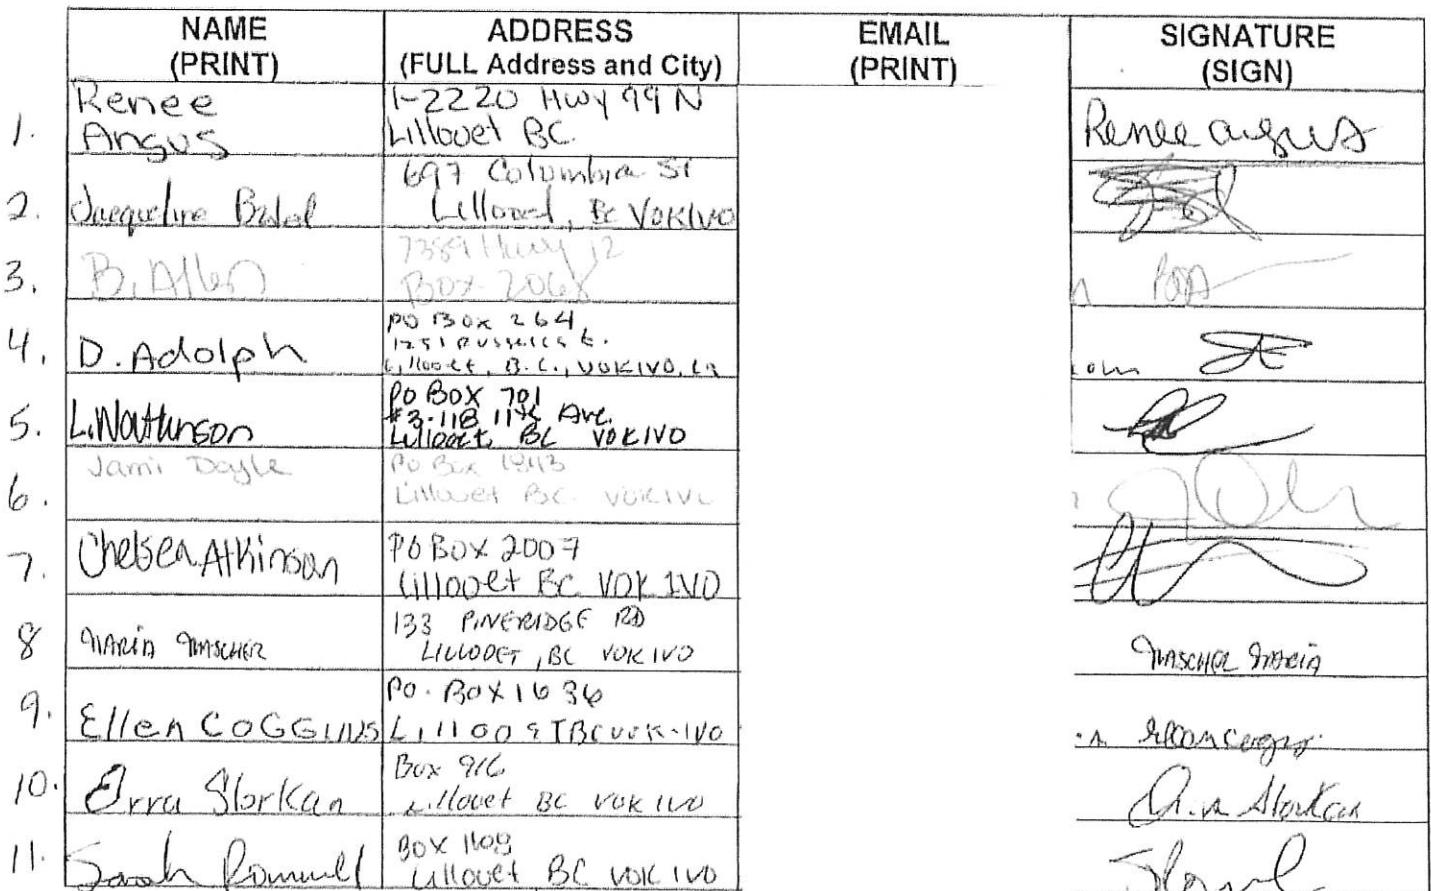 NAME (PRINT) ADDRESS (FULL Address and City) EMAIL (PRINT) SIGNATURE (SIGN)
1. Renee Angus 1-2220 Hwy 99 N Renee angus
Lillooet BC.
2. Jacqueline 697 Columbia St
Lillooet, BC V0K1V0
3. B. Allen 7359 Hwy 12
Box 2068
4. D. Adolph PO BOX 264,
Lillooet, B.C., V0K1V0,
om
5. L. Watkinson PO BOX 701
#3-118 11th Ave.
Lillooet, BC V0K1V0
6. Jami Doyle Po Box 1843
Lillooet BC. V0K1V0
7. Chelsea Atkinson PO BOX 2007
Lillooet BC V0K 1V0
8 MARIA MASCHER 133 PINERIDGE RD MASCHER MARIA
LILLOOET, BC V0K 1V0
9. Ellen COGGINS PO. BOX 1636
LillooET BC V0K-1V0
10. Storkan Box 916 Storkan
Lillooet BC V0K 1V0
11. Sarah BOX 1109
Lillooet BC V0K 1V0